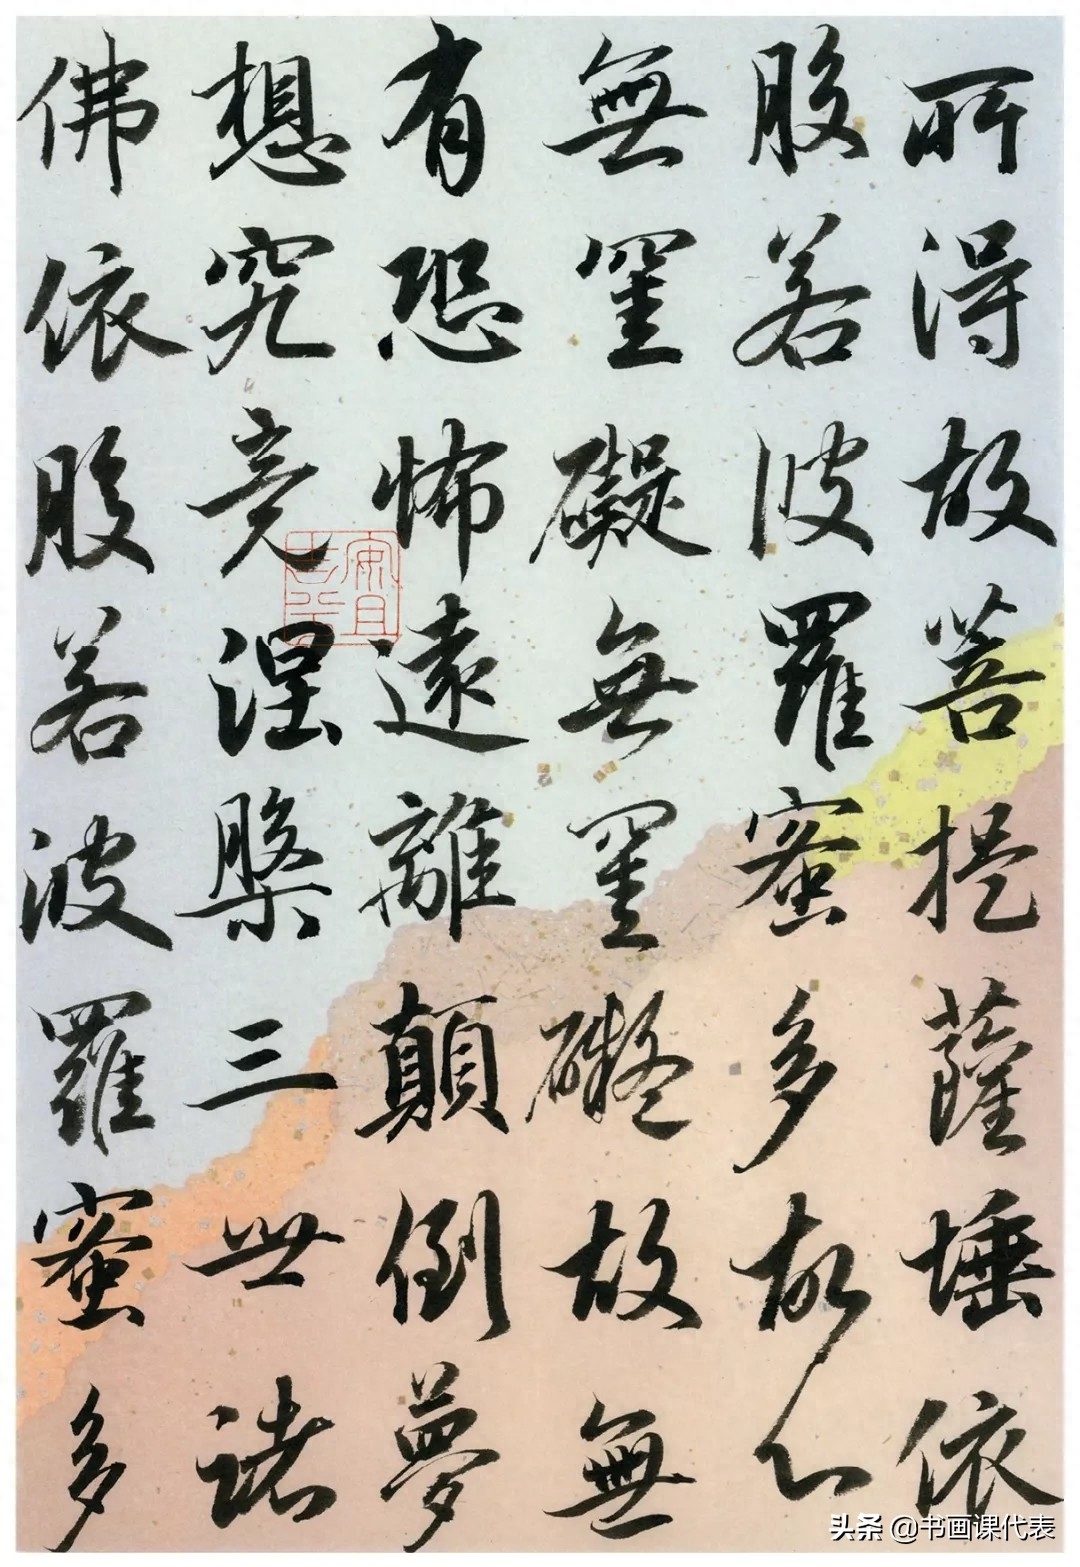 所得故菩提薩埵依
般若波羅蜜多故心
無罣礙無罣礙故無
有恐怖遠離顛倒夢
想究竟涅槃三世諸
佛依般若波羅蜜多
安且
吉
头条 @书画课代表